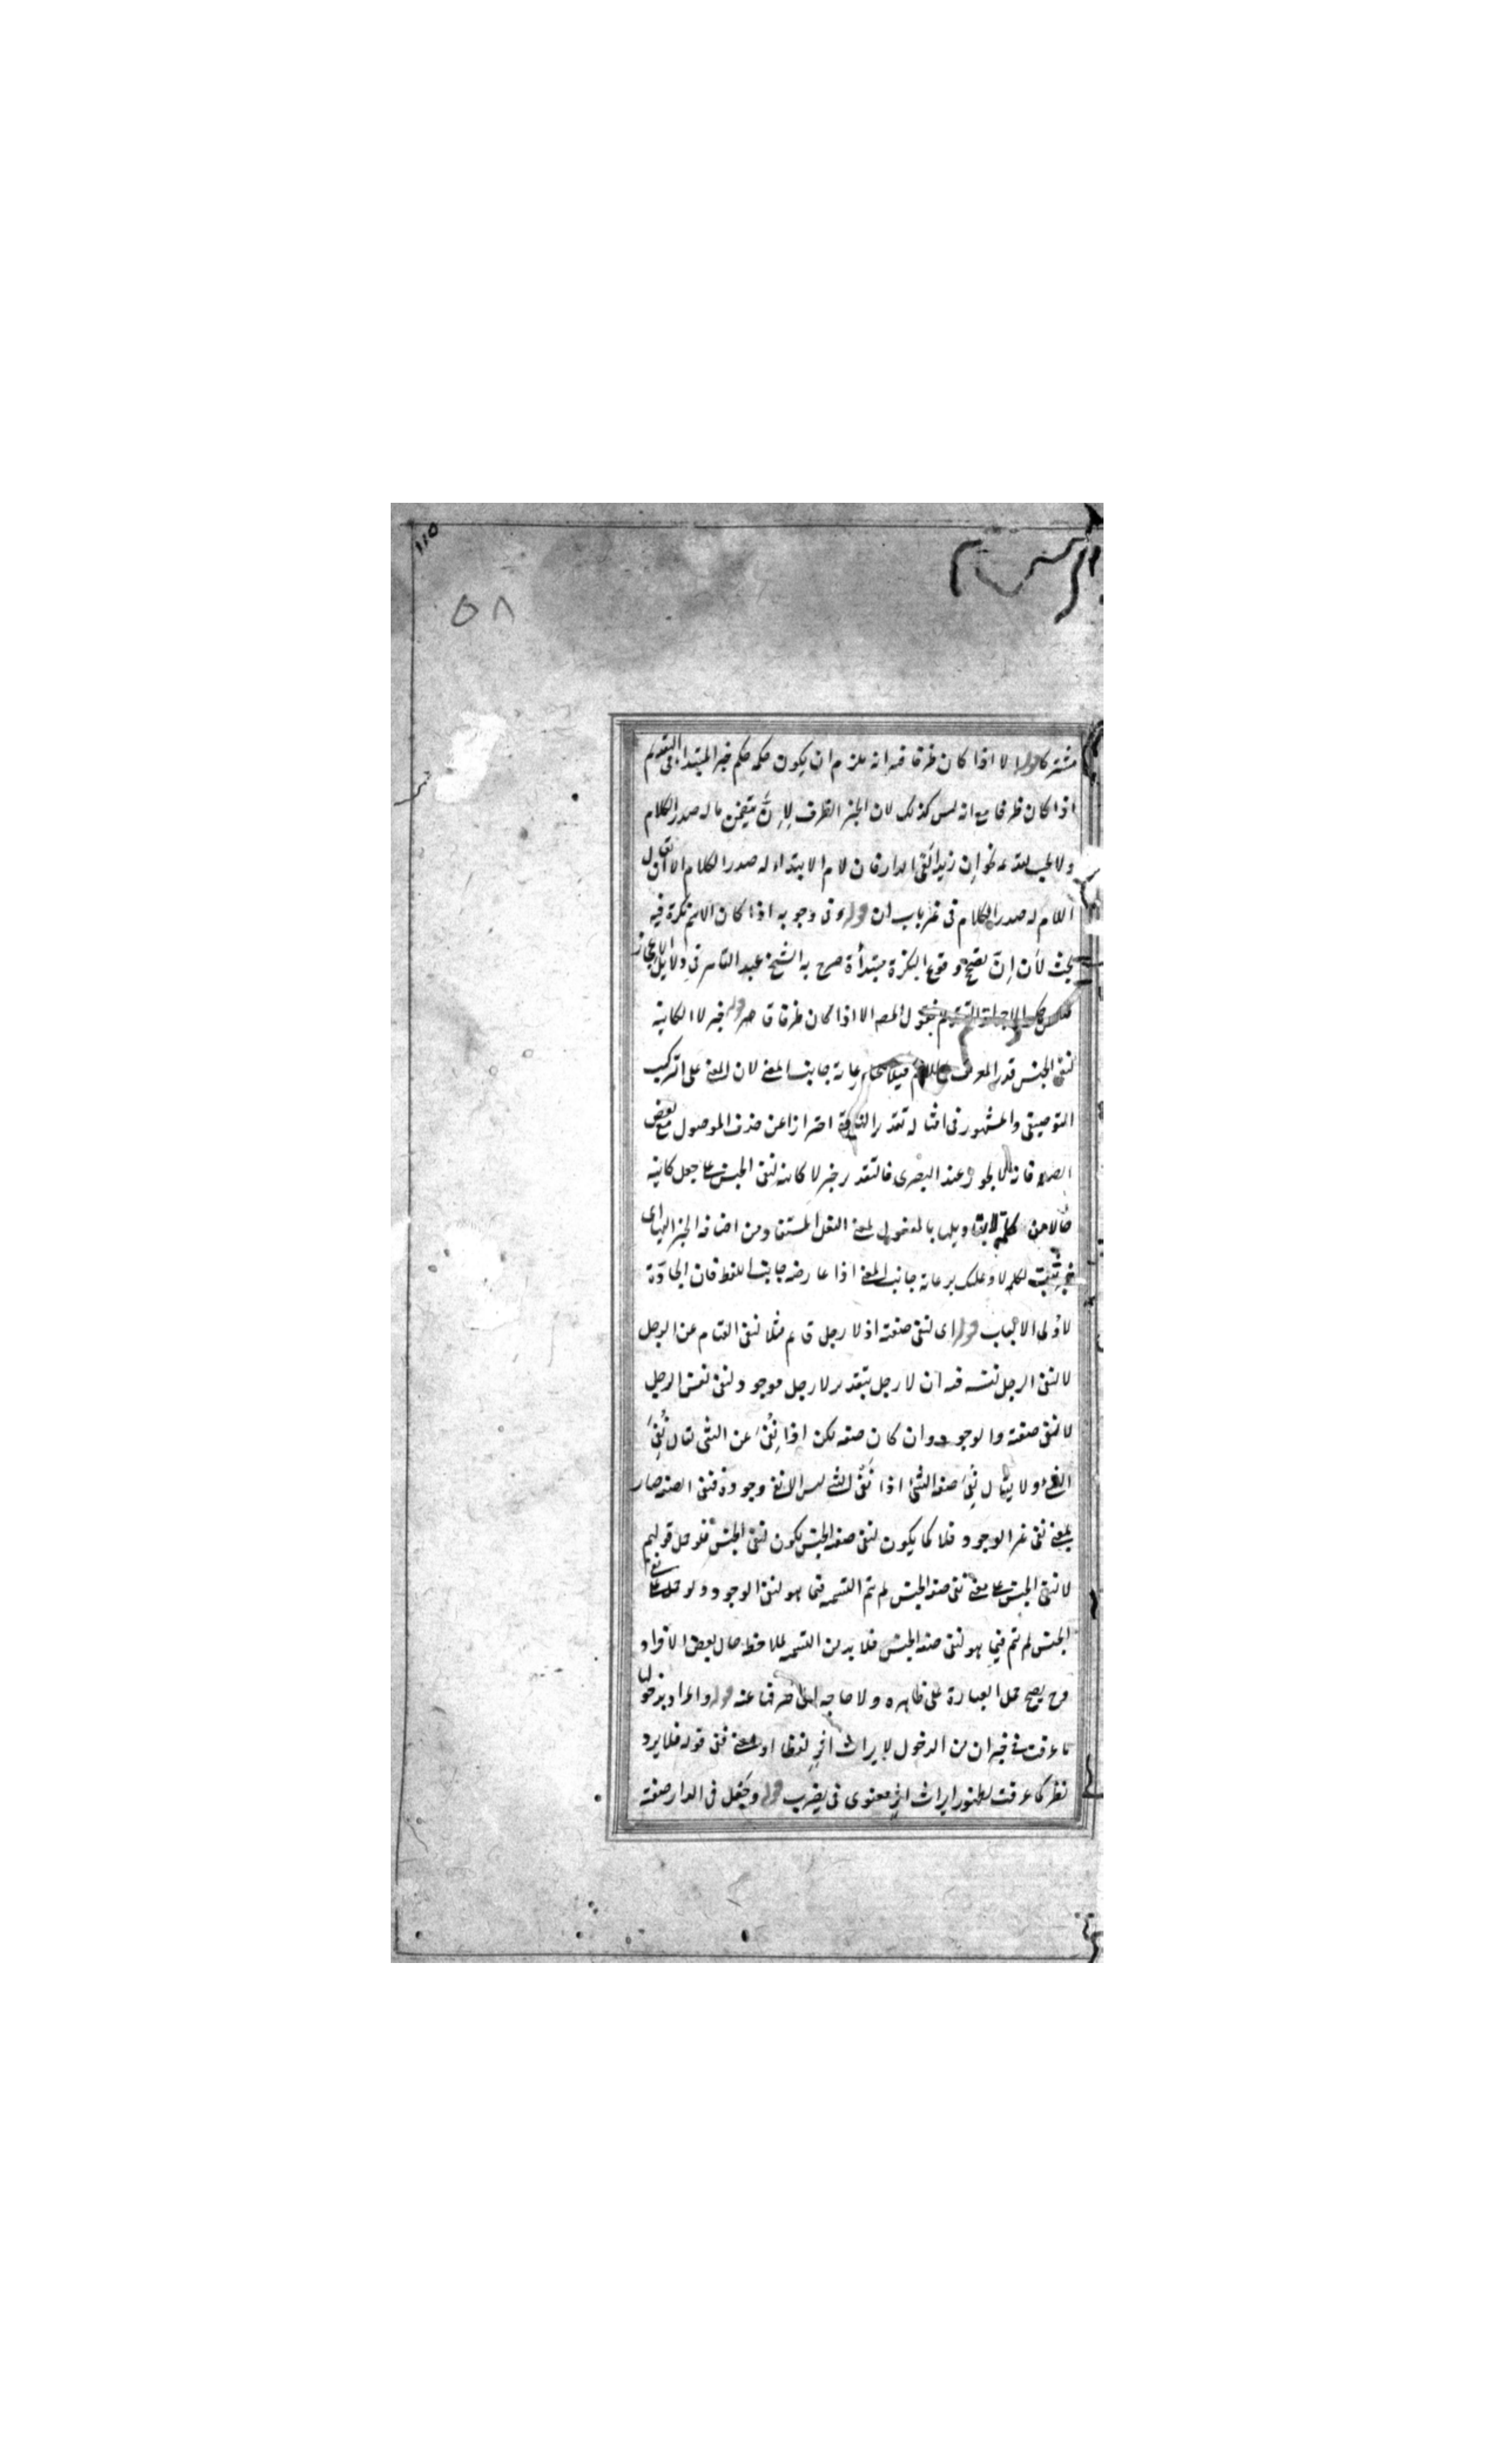 ١١٥
٥٨
مشتركا قوله الا اذا كان ظرفا فيه انه يلزم ان يكون حكمه حكم خبر المبتدا في التقديم
اذا كان ظرفا مع انه ليس كذلك لان الخبر الظرف لإنّ يتضمن ما له صدر الكلام
ولا يجب تقديمه نحو إن زيدا لفى الدار فان لام الابتداء له صدر الكلام الا ان يقال
اللام له صدر الكلام في غير باب ان قوله وفى وجوبه اذا كان الاسم نكرة فيه
بحث لأن إنّ تصحح وقوع النكرة مبتدأة صرح به الشيخ عبد القاهر في دلايل الاعجاز
المصـ الا اذا كان ظرفا قوله خبر لا الكاينة
لنفى الجنس قدر المعرف رعاية جانب المعنى لان المعنى على التركيب
التوصيفى والمشهور فى امثاله تقدير النكرة احترازا عن حذف الموصول مع بعض
الصلة فانه لا يجوز عند البصرى فالتقدير خبر لا كاينة لنفى الجنس على جعل كاينة
حالا من كلمة لا بتاويلها بالمفعول لمعنى الفعل المستفاد من اضافة الخبر اليها اى
خبر يثبت لكلمة لا وعليك برعاية جانب المعنى اذا عارضه جانب اللفظ فان الجادّة
لأولى الالباب قوله اى لنفى صفته اذ لا رجل قايم مثلا لنفى القيام عن الرجل
لا لنفى الرجل نفسه فيه ان لا رجل بتقدير لا رجل موجود لنفى نفس الرجل
لا لنفى صفته والوجود وان كان صفة لكن اذا نُفِىَ عن الشئ يقال نُفِىَ
الشئ ولا يقال نُفِىَ صفة الشئ اذا نفى الشئ ليس الا نفى وجوده فنفى الصفة صار
بمعنى نفى غير الوجود فلا كما يكون لنفى صفة الجنس يكون لنفى الجنس فلو حمل قولهم
لا لنفى الجنس على معنى نفى صفة الجنس لم يتم القسمة فيما هو لنفى الوجود ولو حمل على نفى
الجنس لم يتم فيما هو لنفى صفة الجنس فلا بد من القسمة لملاحظة حال بعض الافراد
وح يصح حمل العبارة على ظاهره ولا حاجة الى صرفها عنه قوله والمراد بدخولها
ما عرفت في خبر ان من الدخول لايراث اثر لفظا او معنى ففى قوله فلا يرد
نظر كما عرفت لظهور ايراث اثر معنوى فى يضرب قوله وجعل فى الدار صفة